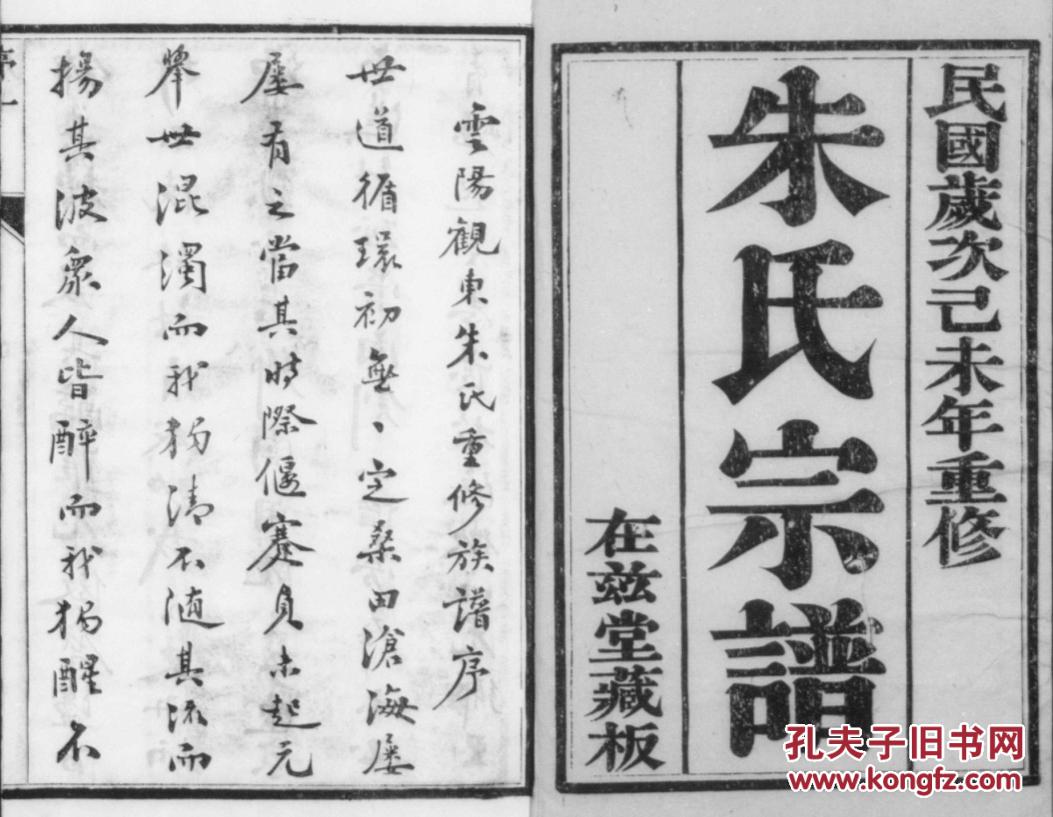 民國歲次己未年重修
朱氏宗譜
在茲堂藏板
雲陽觀東朱氏重修族譜序
世道循環初無丶定桑田滄海屡
屡有之當其時際偃蹇貞未起元
舉世混濁而我獨清不随其流而
揚其波衆人皆醉而我獨醒不
孔夫子旧书网
www.kongfz.com